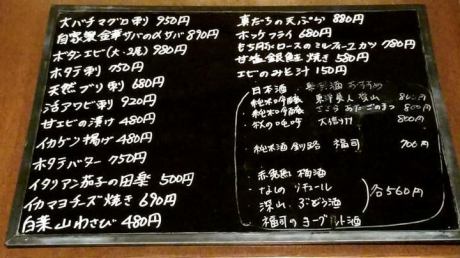 大バチマグロ刺 950円
自家製金華サバの〆サバ 890円
ボタンエビ(大・2尾) 980円
ホタテ刺 750円
天然ブリ刺 680円
活アワビ刺 920円
甘エビの漬け 480円
イカゲソ揚げ 480円
ホタテバター 750円
イタリアン茄子の田楽 500円
イカマヨチーズ焼き 690円
白菜山わさび 480円
真だちの天ぷら 880円
ホッケフライ 680円
もち豚ロースのミルフィーユカツ 780円
甘塩銀鮭焼き 580円
エビのみそ汁 150円
日本酒 おすすめ
純米吟醸
純米吟醸 あたごのまつ 800円
秋の吟吟 800円
純米酒 釧路 福司 700円
梅酒
なしのリキュール
深山ぶどう酒
福司のヨーグルト酒
各560円